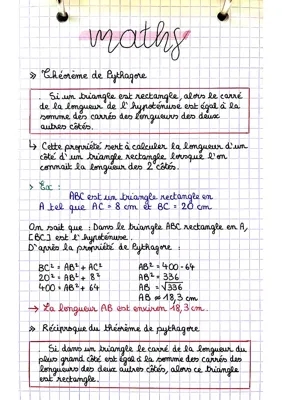 maths
» Théorème de Pythagore
. Si un triangle est rectangle, alors le carré
de la longueur de l'hypoténuse est égal à la
somme des carrés des longueurs des deux
autres côtés.
↳ Cette propriété sert à calculer la longueur d'un
côté d'un triangle rectangle lorsque l'on
connaît la longueur des 2 côtés.
> Ex :
ABC est un triangle rectangle en
A tel que AC = 8 cm et BC = 20 cm.
On sait que : Dans le triangle ABC rectangle en A,
[BC] est l'hypoténuse.
D'après la propriété de Pythagore :
BC² = AB² + AC²
20² = AB² + 8²
400 = AB² + 64
AB² = 400 - 64
AB² = 336
AB = √336
AB ≈ 18,3 cm
→ La longueur AB est environ 18,3 cm.
» Réciproque du théorème de pythagore
. Si dans un triangle le carré de la longueur du
plus grand côté est égal à la somme des carrés des
longueurs des deux autres côtés, alors ce triangle
est rectangle.